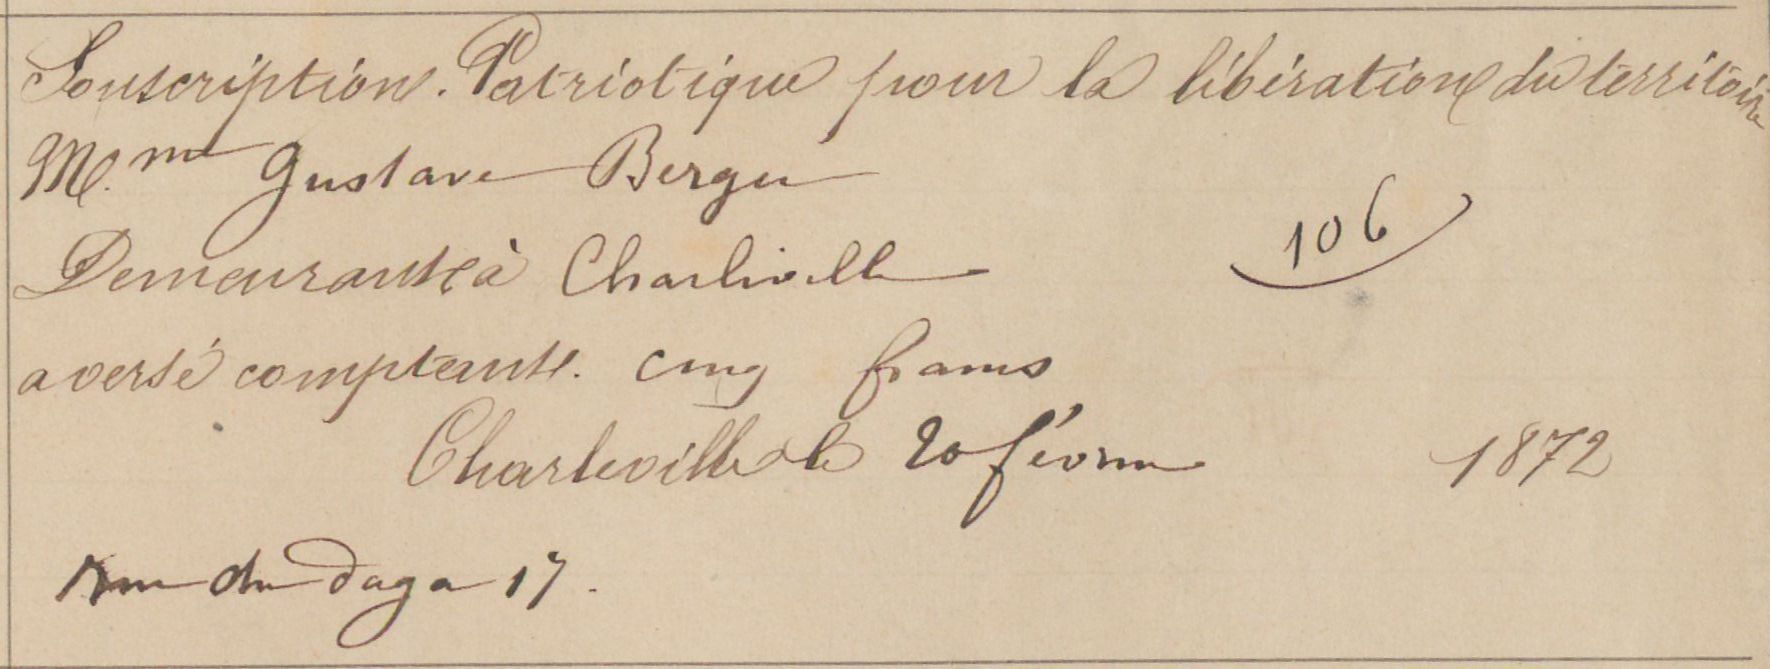 Souscription. Patriotique pour la libération du territoire
M.me Gustave Berger
Demeurant à Charleville
106
a versé comptant. cinq francs
Charleville le 20 février 1872
rue du Daga 17.